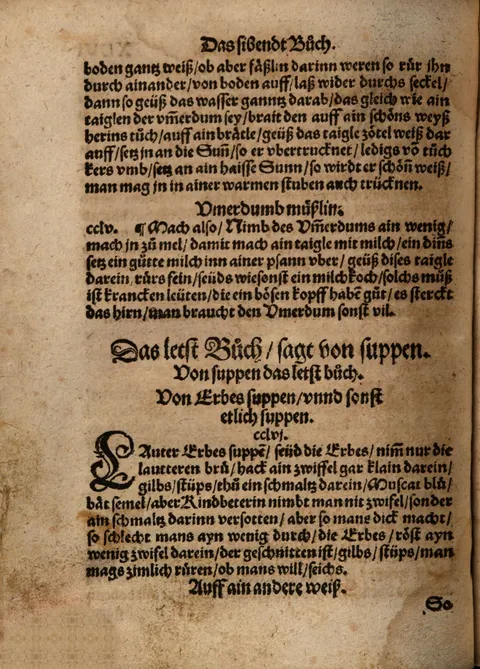 Das sibendt Bůch.
boden gantz weiß/ ob aber fäßlin darinn weren so rür jhn
durch ainander/ von boden auff/ laß wider durchs seckel/
dann so geüß das wasser ganntz darab/ das gleich wie ain
taiglen der vm̃erdum sey/ brait den auff ain schöns weyß
herins tůch/ auff ain brätle/ geüß das taigle zötel weiß dar
auff/ setz jn an die Sun̄/ so er vbertrucknet/ ledigs võ tůch
kers vmb/ setz an ain haisse Sunn/ so wirdt er schön̄ weiß/
man mag jn in ainer warmen stuben auch trücknen.
Vmerdumb můßlin.
cclv. ¶ Mach also/ Nimb des Vm̃erdums ain wenig/
mach jn zů mel/ damit mach ain taigle mit milch/ ein dins
setz ein gůtte milch inn ainer psann vber/ geüß dises taigle
darein/ rürs fein/ seüds wie sonst ein milchkoch/ solchs můß
ist krancken leüten/ die ein bösen kopff habẽ gůt/ es sterckt
das hirn/ man braucht den Vmerdum sonst vil.
Das letst Bůch/ sagt von suppen.
Von suppen das letst bůch.
Von Erbes suppen/ vnnd sonst
etlich suppen.
cclvj.
LAuter Erbes suppẽ/ seüd die Erbes/ nim̃ nur die
lautteren brů/ hack ain zwiffel gar klain darein/
gilbs/ stüps/ thů ein schmaltz darein/ Muscat blů/
bät semel/ aber Kindbeterin nimbt man nit zwifel/ sonder
ain schmaltz darinn versotten/ aber so mans dick macht/
so schlecht mans ayn wenig durch/ die Erbes/ röst ayn
wenig zwifel darein/ der geschnitten ist/ gilbs/ stüps/ man
mags zimlich rüren/ ob mans will/ seichs.
Auff ain andere weiß.
So